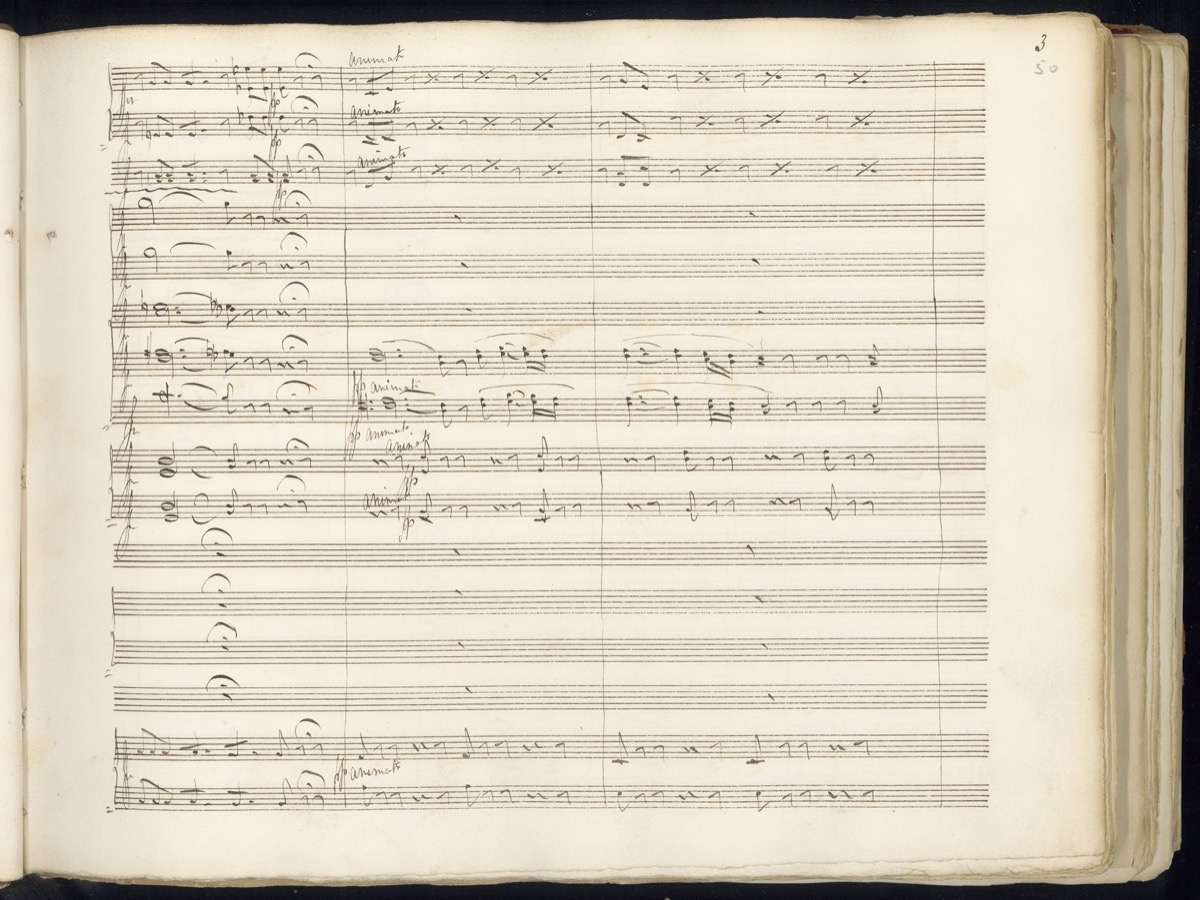 3
50
animato
pp
animato
pp
animato
pp
pp animato
pp animato
animato
pp
animato
pp
pp animato